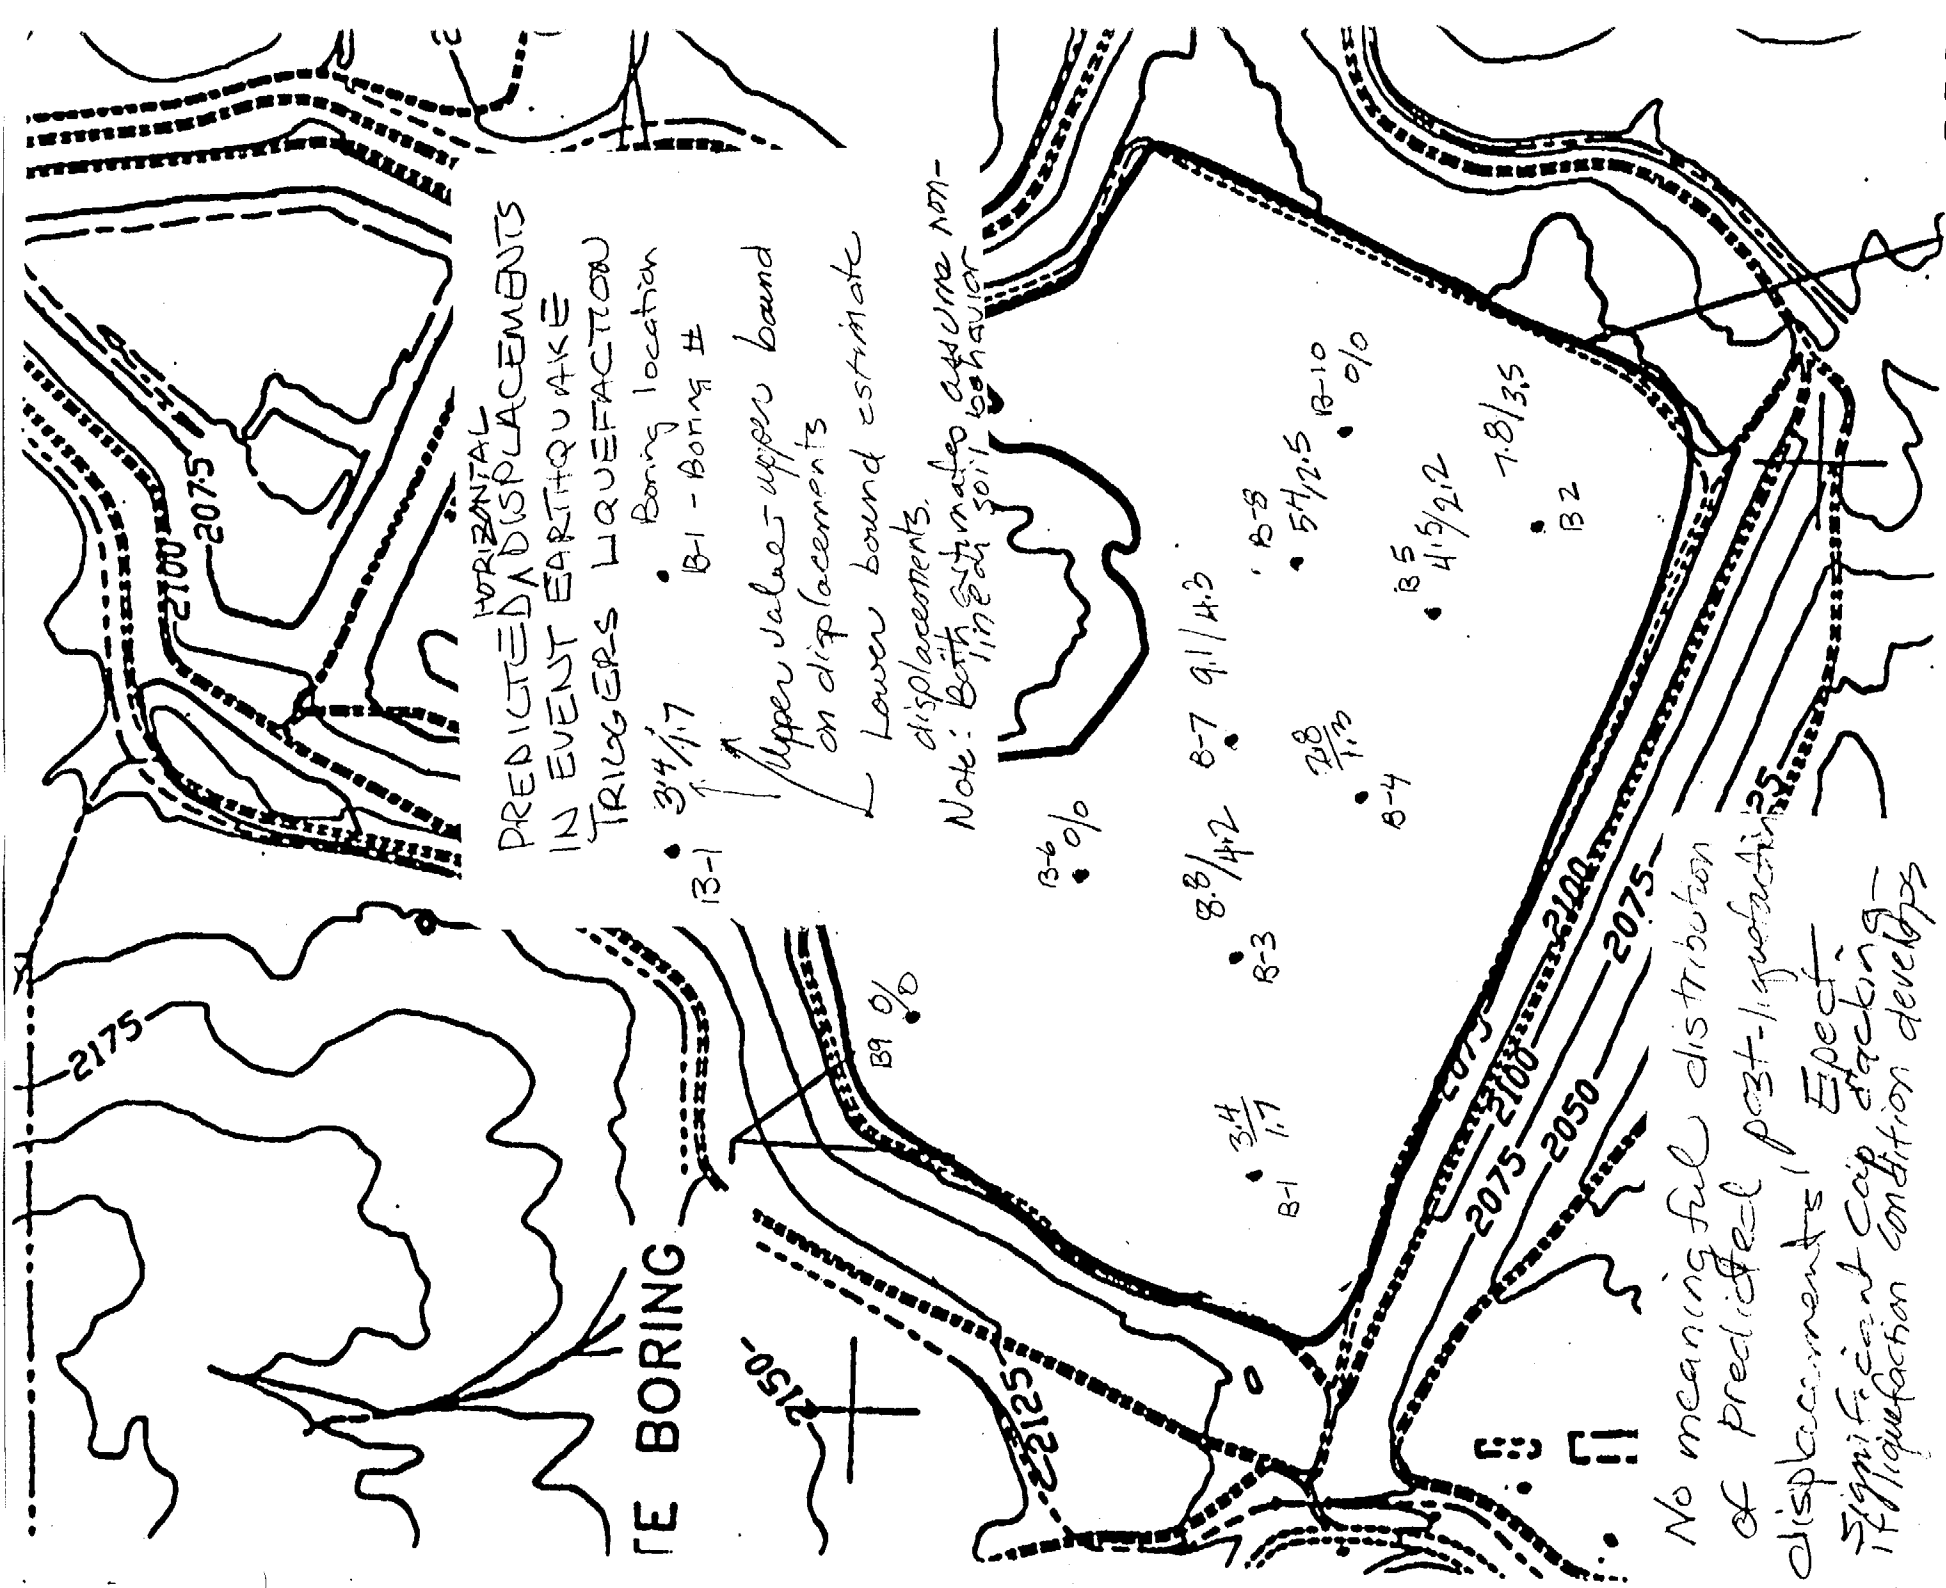 PREDICTED HORIZONTAL DISPLACEMENTS
IN EVENT EARTHQUAKE
TRIGGERS LIQUEFACTION
• Boring location
B-1 - Boring #
B-1 • 3.4/1.7
Upper value - upper bound
on displacements
Lower bound estimate
displacements.
Note: Both estimates assume non-
linear soil behavior
B-6 0/0
B9 0/0
B-3 8.8/4.2
B-7 9.1/4.3
B-8 5.4/2.5
B-10 0/0
B5 4.5/2.2
B2 7.8/3.5
B-4 2.8/1.3
B-1 3.4/1.7
TE BORING
2175
2150
2125
2100
2075
2100
2075
2073
2100
2075
2100
2075
2050
25
No meaningful distribution
of predicted post-liquefaction
displacements! Epect
significant cap cracking
if liquefaction condition develops